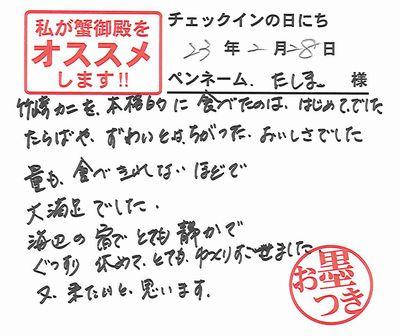 私が蟹御殿を
オススメ
します!!
チェックインの日にち
23 年 2 月 28 日
ペンネーム. たしま 様
竹崎カニを、本格的に食べたのは、はじめてでした
たらばや、ずわいとは、ちがった、おいしさでした
量も、食べきれないほどで
大満足でした.
海辺の宿でとても静かで
ぐっすり休めて、とても、ゆっくりすごせました
又、来たいと、思います.
お墨つき